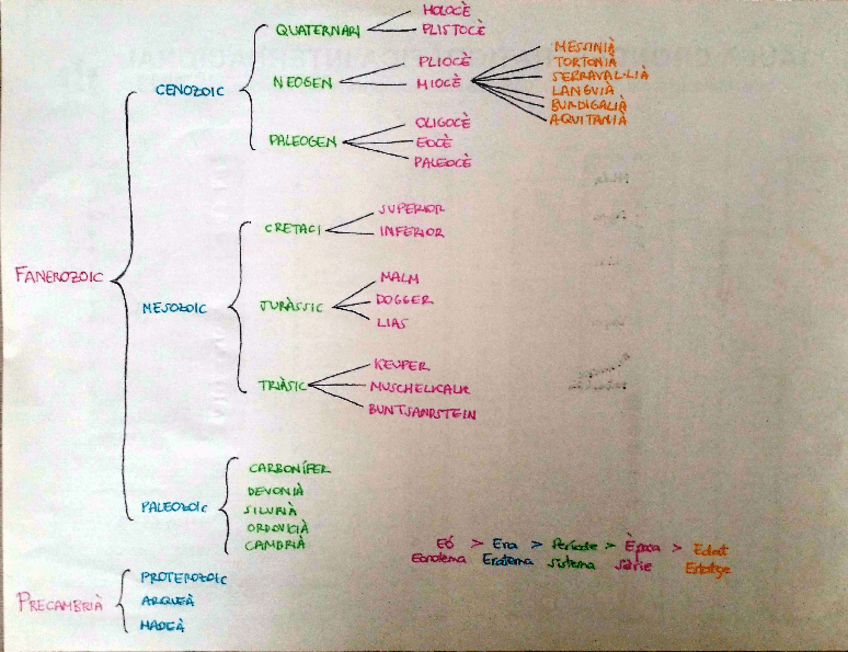 HOLOCÈ
QUATERNARI
PLISTOCÈ
MESSINIÀ
PLIOCÈ
TORTONIÀ
NEOGEN
SERRAVAL·LIÀ
CENOZOIC
MIOCÈ
LANGUIÀ
BURDIGALIÀ
AQUITANIÀ
OLIGOCÈ
PALEOGEN
EOCÈ
PALEOCÈ
SUPERIOR
CRETACI
INFERIOR
FANEROZOIC
MALM
MESOZOIC
JURÀSSIC
DOGGER
LIAS
KEUPER
TRIÀSIC
MUSCHELKALK
BUNTSANDSTEIN
CARBONÍFER
DEVONIÀ
PALEOZOIC
SILURIÀ
ORDOVICIÀ
CAMBRIÀ
Eó > Era > Període > Època > Edat
Eonotema Eratema sistema sèrie Estatge
PROTEROZOIC
PRECAMBRIÀ
ARQUEÀ
HADEÀ